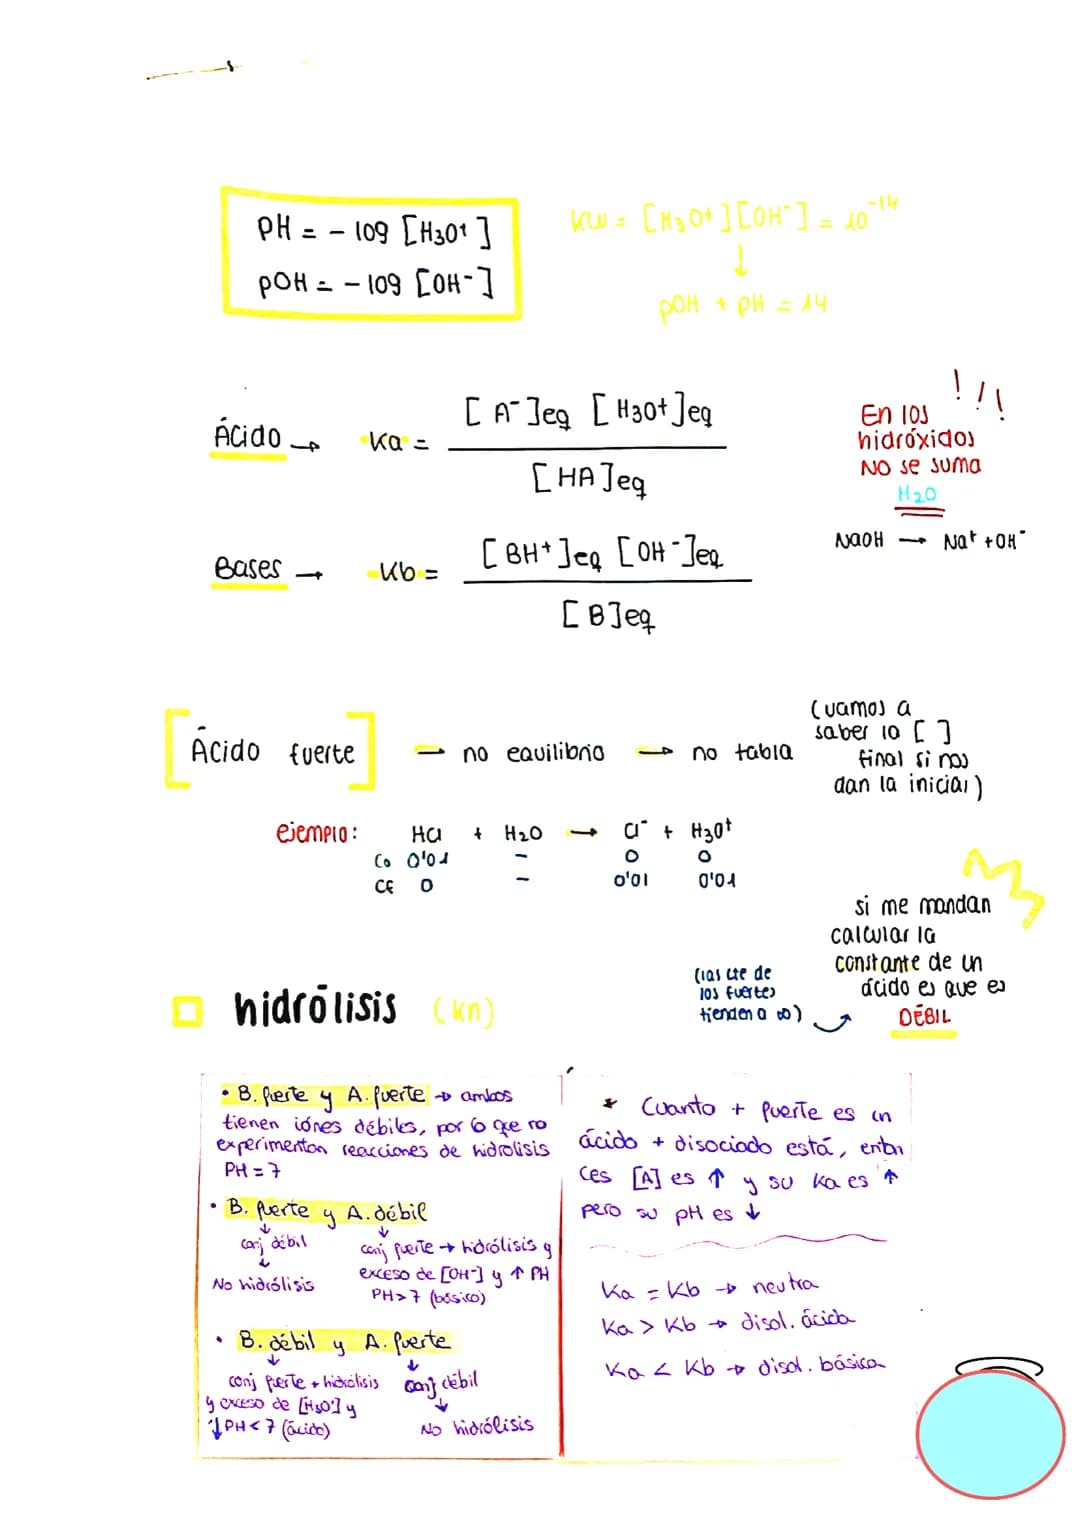 PH = - log [H3O+]
pOH = - log [OH-]
KW = [H3O+][OH-] = 10^-14
↓
pOH + pH = 14
Ácido → Ka = [A-]eq [H3O+]eq
[HA]eq
!!!
En los
hidróxidos
NO se suma
H2O
NaOH → Na+ + OH-
Bases → Kb = [BH+]eq [OH-]eq
[B]eq
[Ácido fuerte] → no equilibrio → no tabla
(vamos a
saber la [ ]
final si nos
dan la inicial)
ejemplo: HCl + H2O → Cl- + H3O+
Co 0'01 - 0 0
CE 0 - 0'01 0'01
si me mandan
calcular la
constante de un
ácido es que es
DÉBIL
(las cte de
los fuertes
tienden a ∞)
hidrólisis (kn)
• B. fuerte y A. fuerte → ambos
tienen iónes débiles, por lo que no
experimentan reacciones de hidrolisis
PH = 7
• B. fuerte y A. débil
↓ ↓
conj débil
↓
No hidrólisis
conj fuerte → hidrólisis y
exceso de [OH-] y ↑ PH
PH>7 (básico)
• B. débil y A. fuerte
↓ ↓
conj fuerte → hidrólisis
y exceso de [H3O+] y
↓PH<7 (ácido)
conj débil
↓
No hidrólisis
* Cuanto + fuerte es un
ácido + disociado está, enton
ces [A] es ↑ y su Ka es ↑
pero su pH es ↓
Ka = Kb → neutra
Ka > Kb → disol. ácida
Ka < Kb → disol. básica